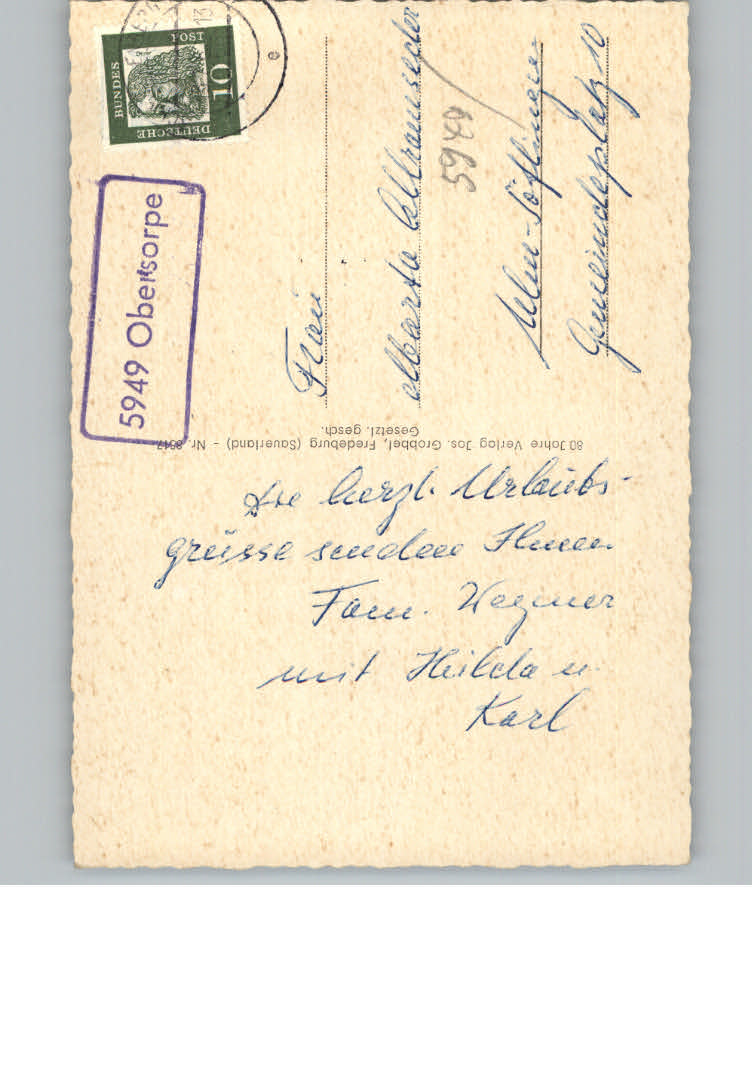 DEUTSCHE
BUNDES
POST
10
13
e
5949 Obersorpe
Frau
5948
Ulm-Söflingen
Gemeindeplatz 10
80 Jahre Verlag Jos. Grobbel, Fredeburg (Sauerland) - Nr. 8617
Gesetzl. gesch.
Die herzl. Urlaubs-
grüsse senden Ihnen
Fam. Wegner
mit Hilda u.
Karl